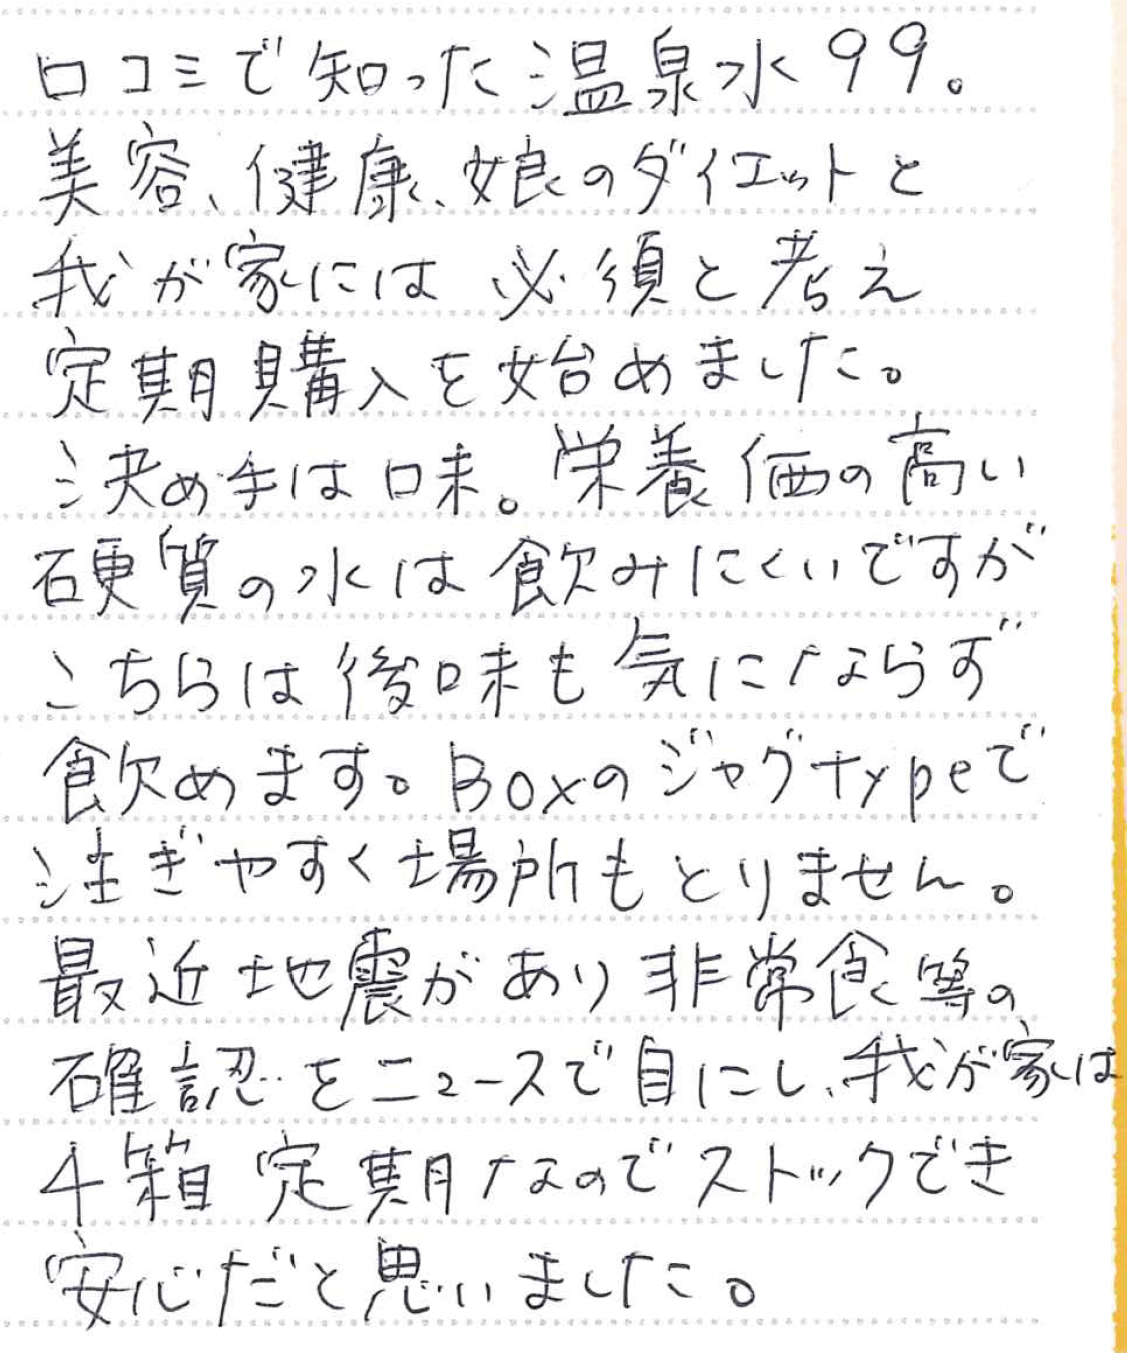 口コミで知った温泉水99。
美容、健康、娘のダイエットと
我が家には必須と考え
定期購入を始めました。
決め手は味。栄養価の高い
硬質の水は飲みにくいですが
こちらは後味も気にならず
飲めます。BoxのジャグTypeで
注ぎやすく場所もとりません。
最近地震があり非常食等の
確認をニュースで目にし、我が家は
4箱定期なのでストックでき
安心だと思いました。